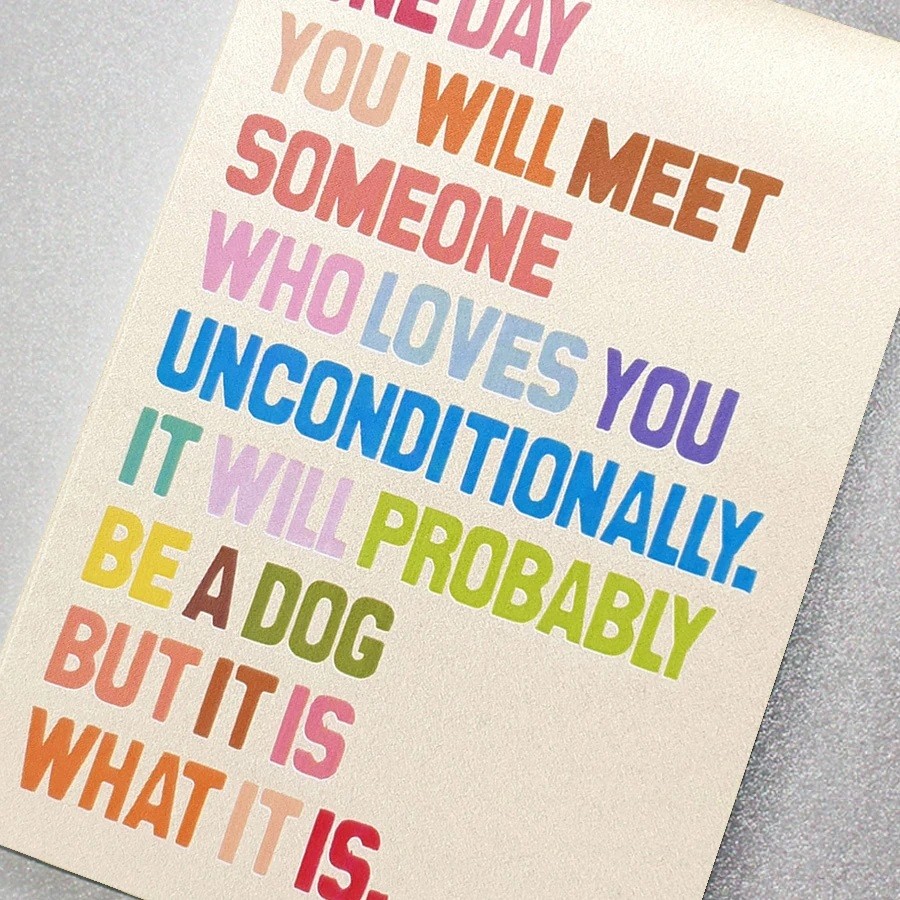 ONE DAY
YOU WILL MEET
SOMEONE
WHO LOVES YOU
UNCONDITIONALLY.
IT WILL PROBABLY
BE A DOG
BUT IT IS
WHAT IT IS.